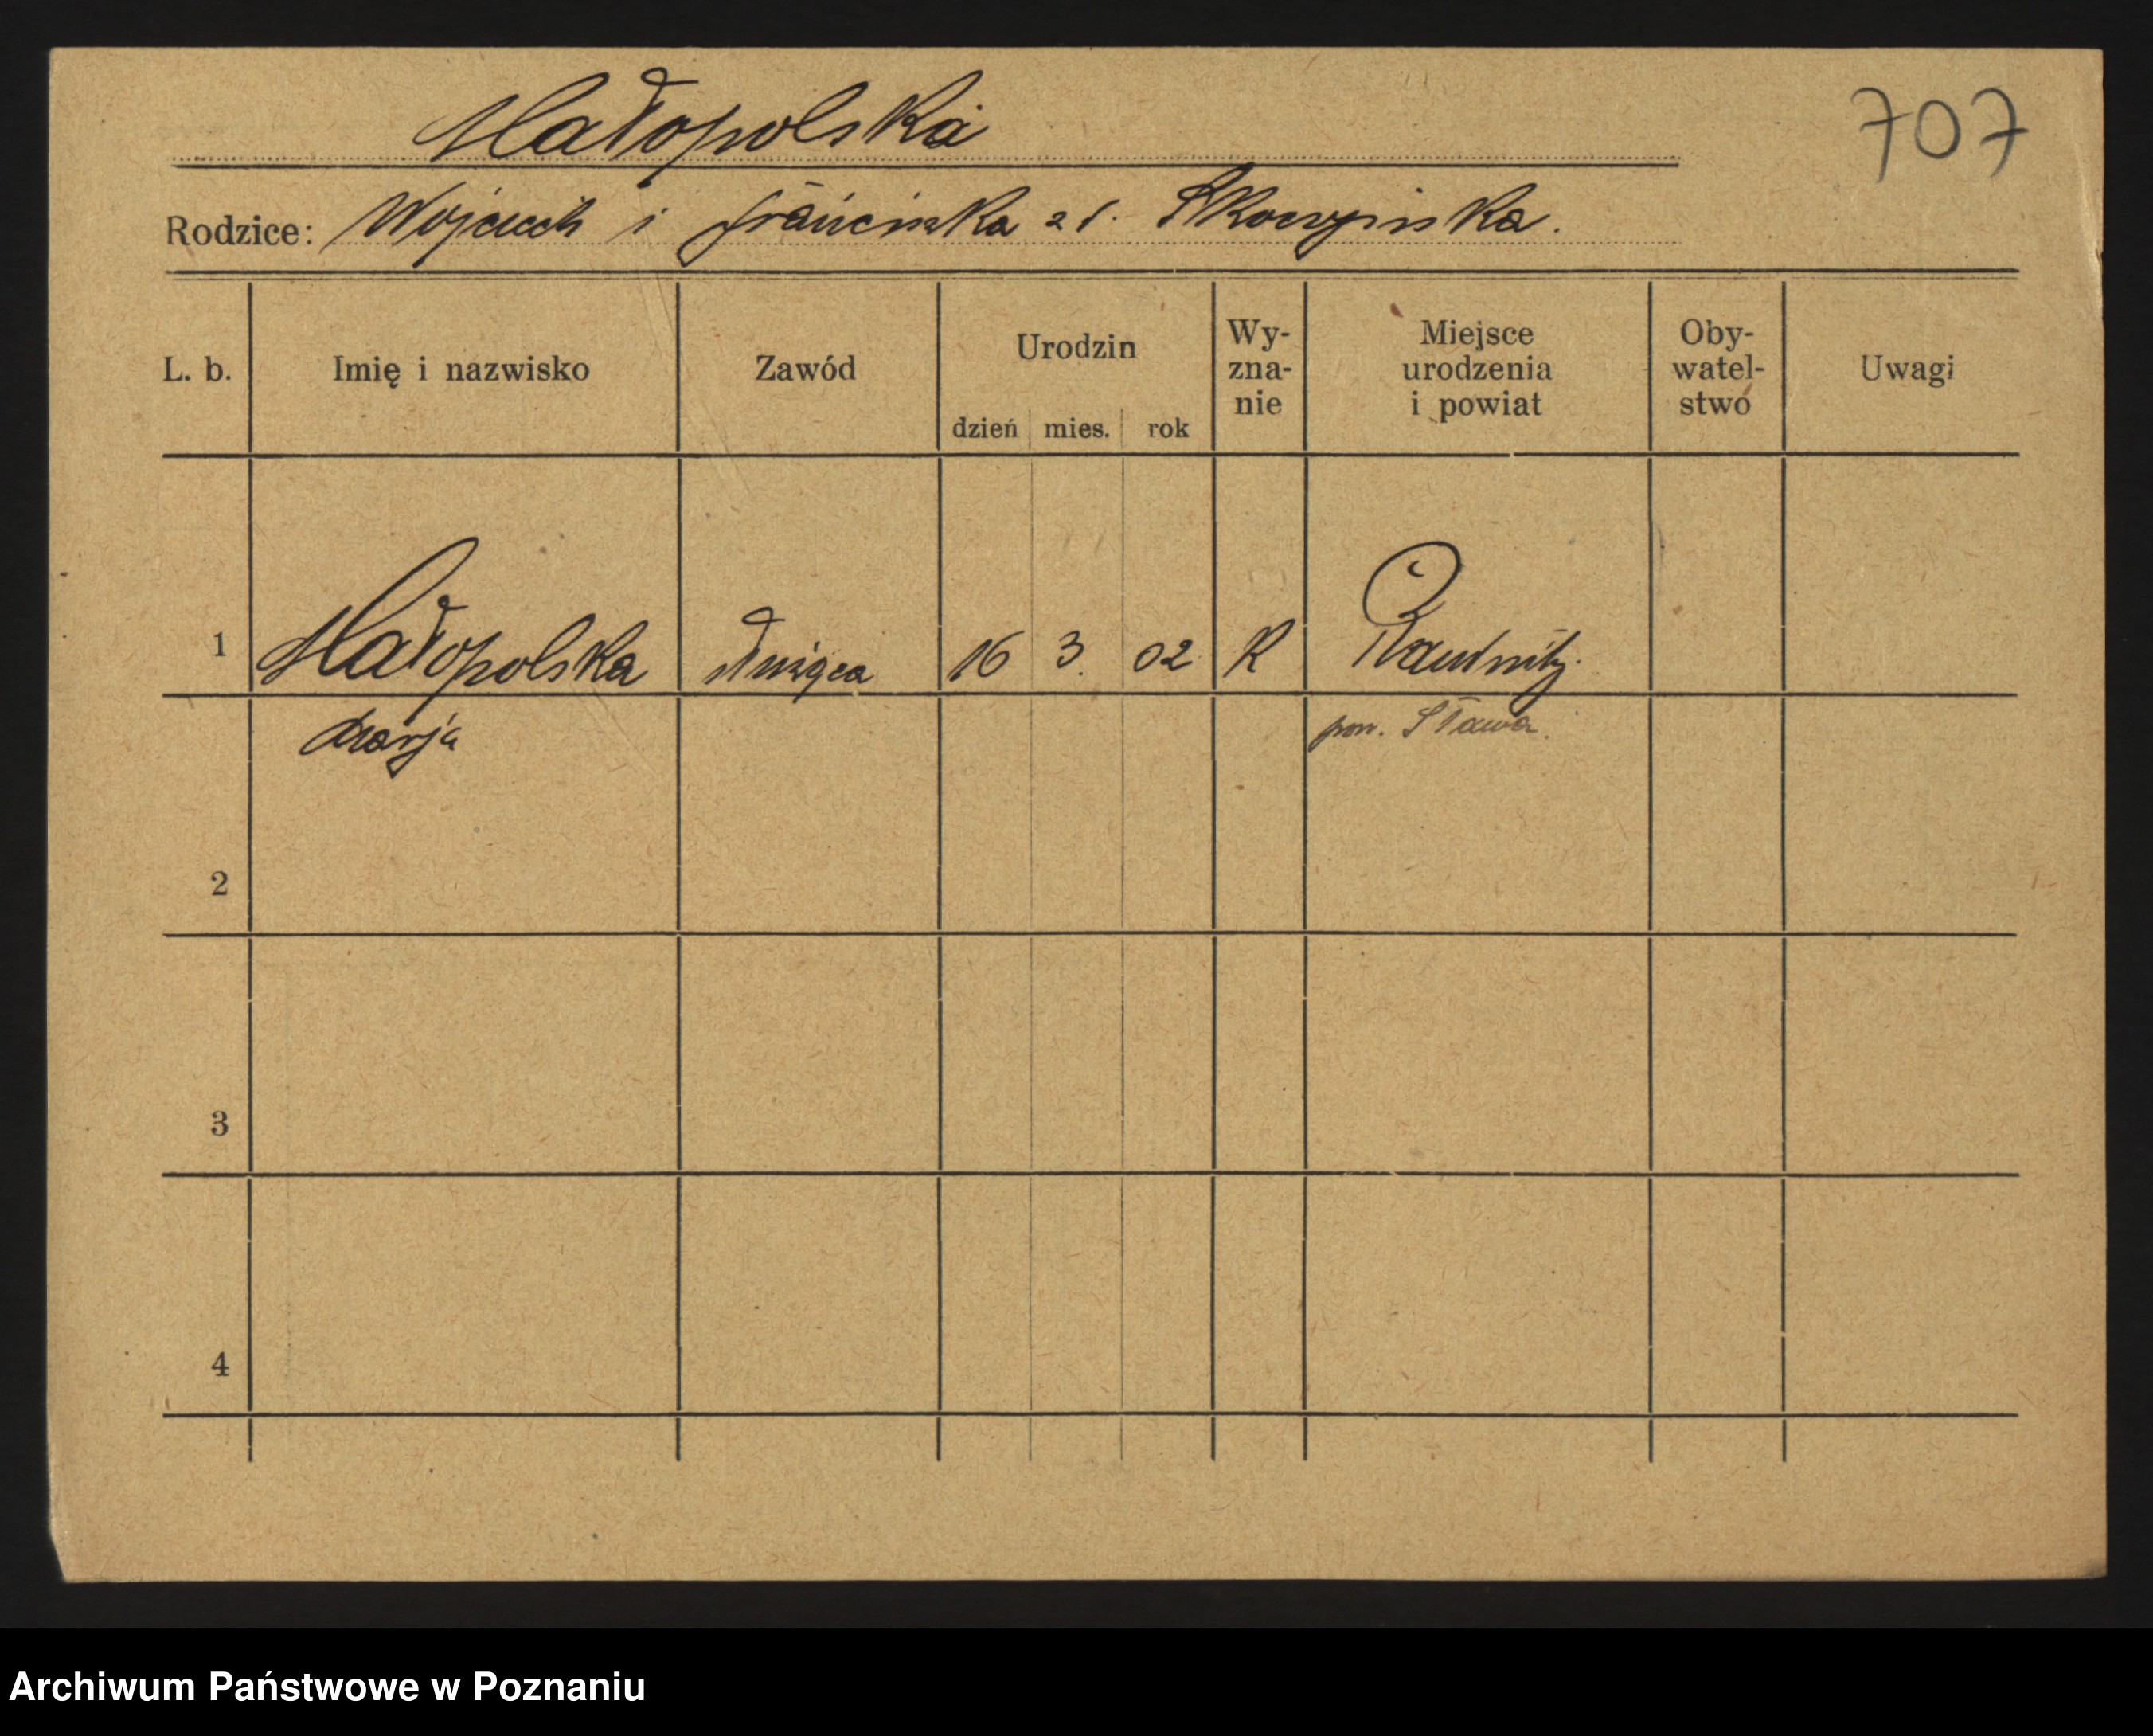 Małopolska
707
Rodzice: Wojciech i Franciszka z d.
L. b.
Imię i nazwisko
Zawód
Urodzin
dzień mies. rok
Wy-
zna-
nie
Miejsce
urodzenia
i powiat
Oby-
watel-
stwo
Uwagi
1 Małopolska służąca 16 3. 02 K Raudnitz.
Marja
pow. Sława.
2
3
4
Archiwum Państwowe w Poznaniu